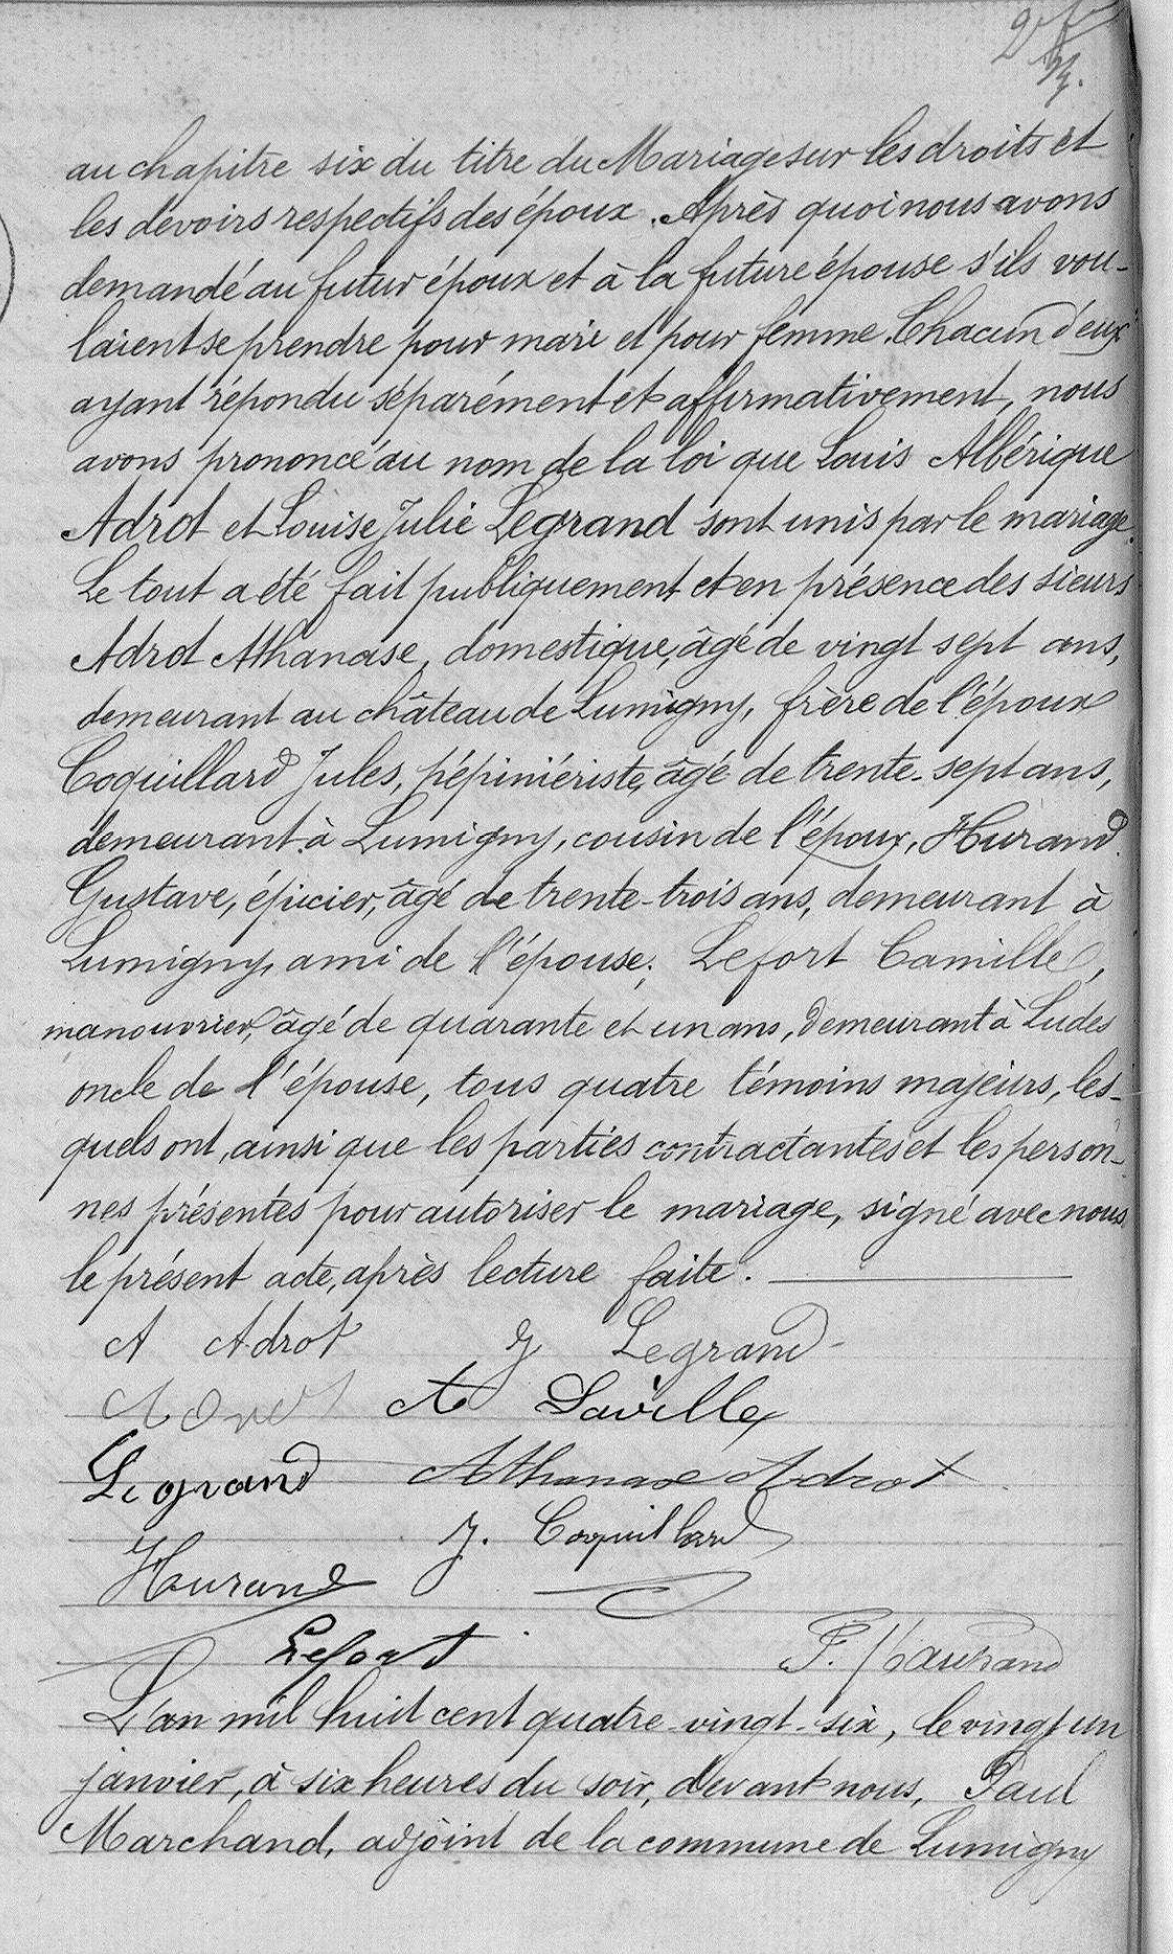 au chapitre six du titre du Mariage sur les droits et
les devoirs respectifs des époux. Après quoi nous avons
demandé au futur époux et à la future épouse s'ils vou-
laient se prendre pour mari et pour femme. Chacun d'eux
ayant répondu séparément et affirmativement, nous
avons prononcé au nom de la loi que Louis Albérique
Adrot et Louise Julie Legrand sont unis par le mariage.
Le tout a été fait publiquement et en présence des sieurs
Adrot Athanase, domestique, âgé de vingt sept ans,
demeurant au château de Lumigny, frère de l'époux
Coquillard Jules, pépiniériste, âgé de trente-sept ans,
demeurant à Lumigny, cousin de l'époux, Hurand
Gustave, épicier, âgé de trente-trois ans, demeurant à
Lumigny, ami de l'épouse; Lefort Camille,
manouvrier, âgé de quarante et un ans, demeurant à Ludes
oncle de l'épouse, tous quatre témoins majeurs, les-
quels ont, ainsi que les parties contractantes et les person-
nes présentes pour autoriser le mariage, signé avec nous
le présent acte, après lecture faite.
A Adrot J Legrand
A Laville
Legrand Athanase Adrot
J. Coquillard
Hurand
Lefort P. Marchand
L'an mil huit cent quatre-vingt-six, le vingt un
janvier, à six heures du soir, devant nous, Paul
Marchand, adjoint de la commune de Lumigny